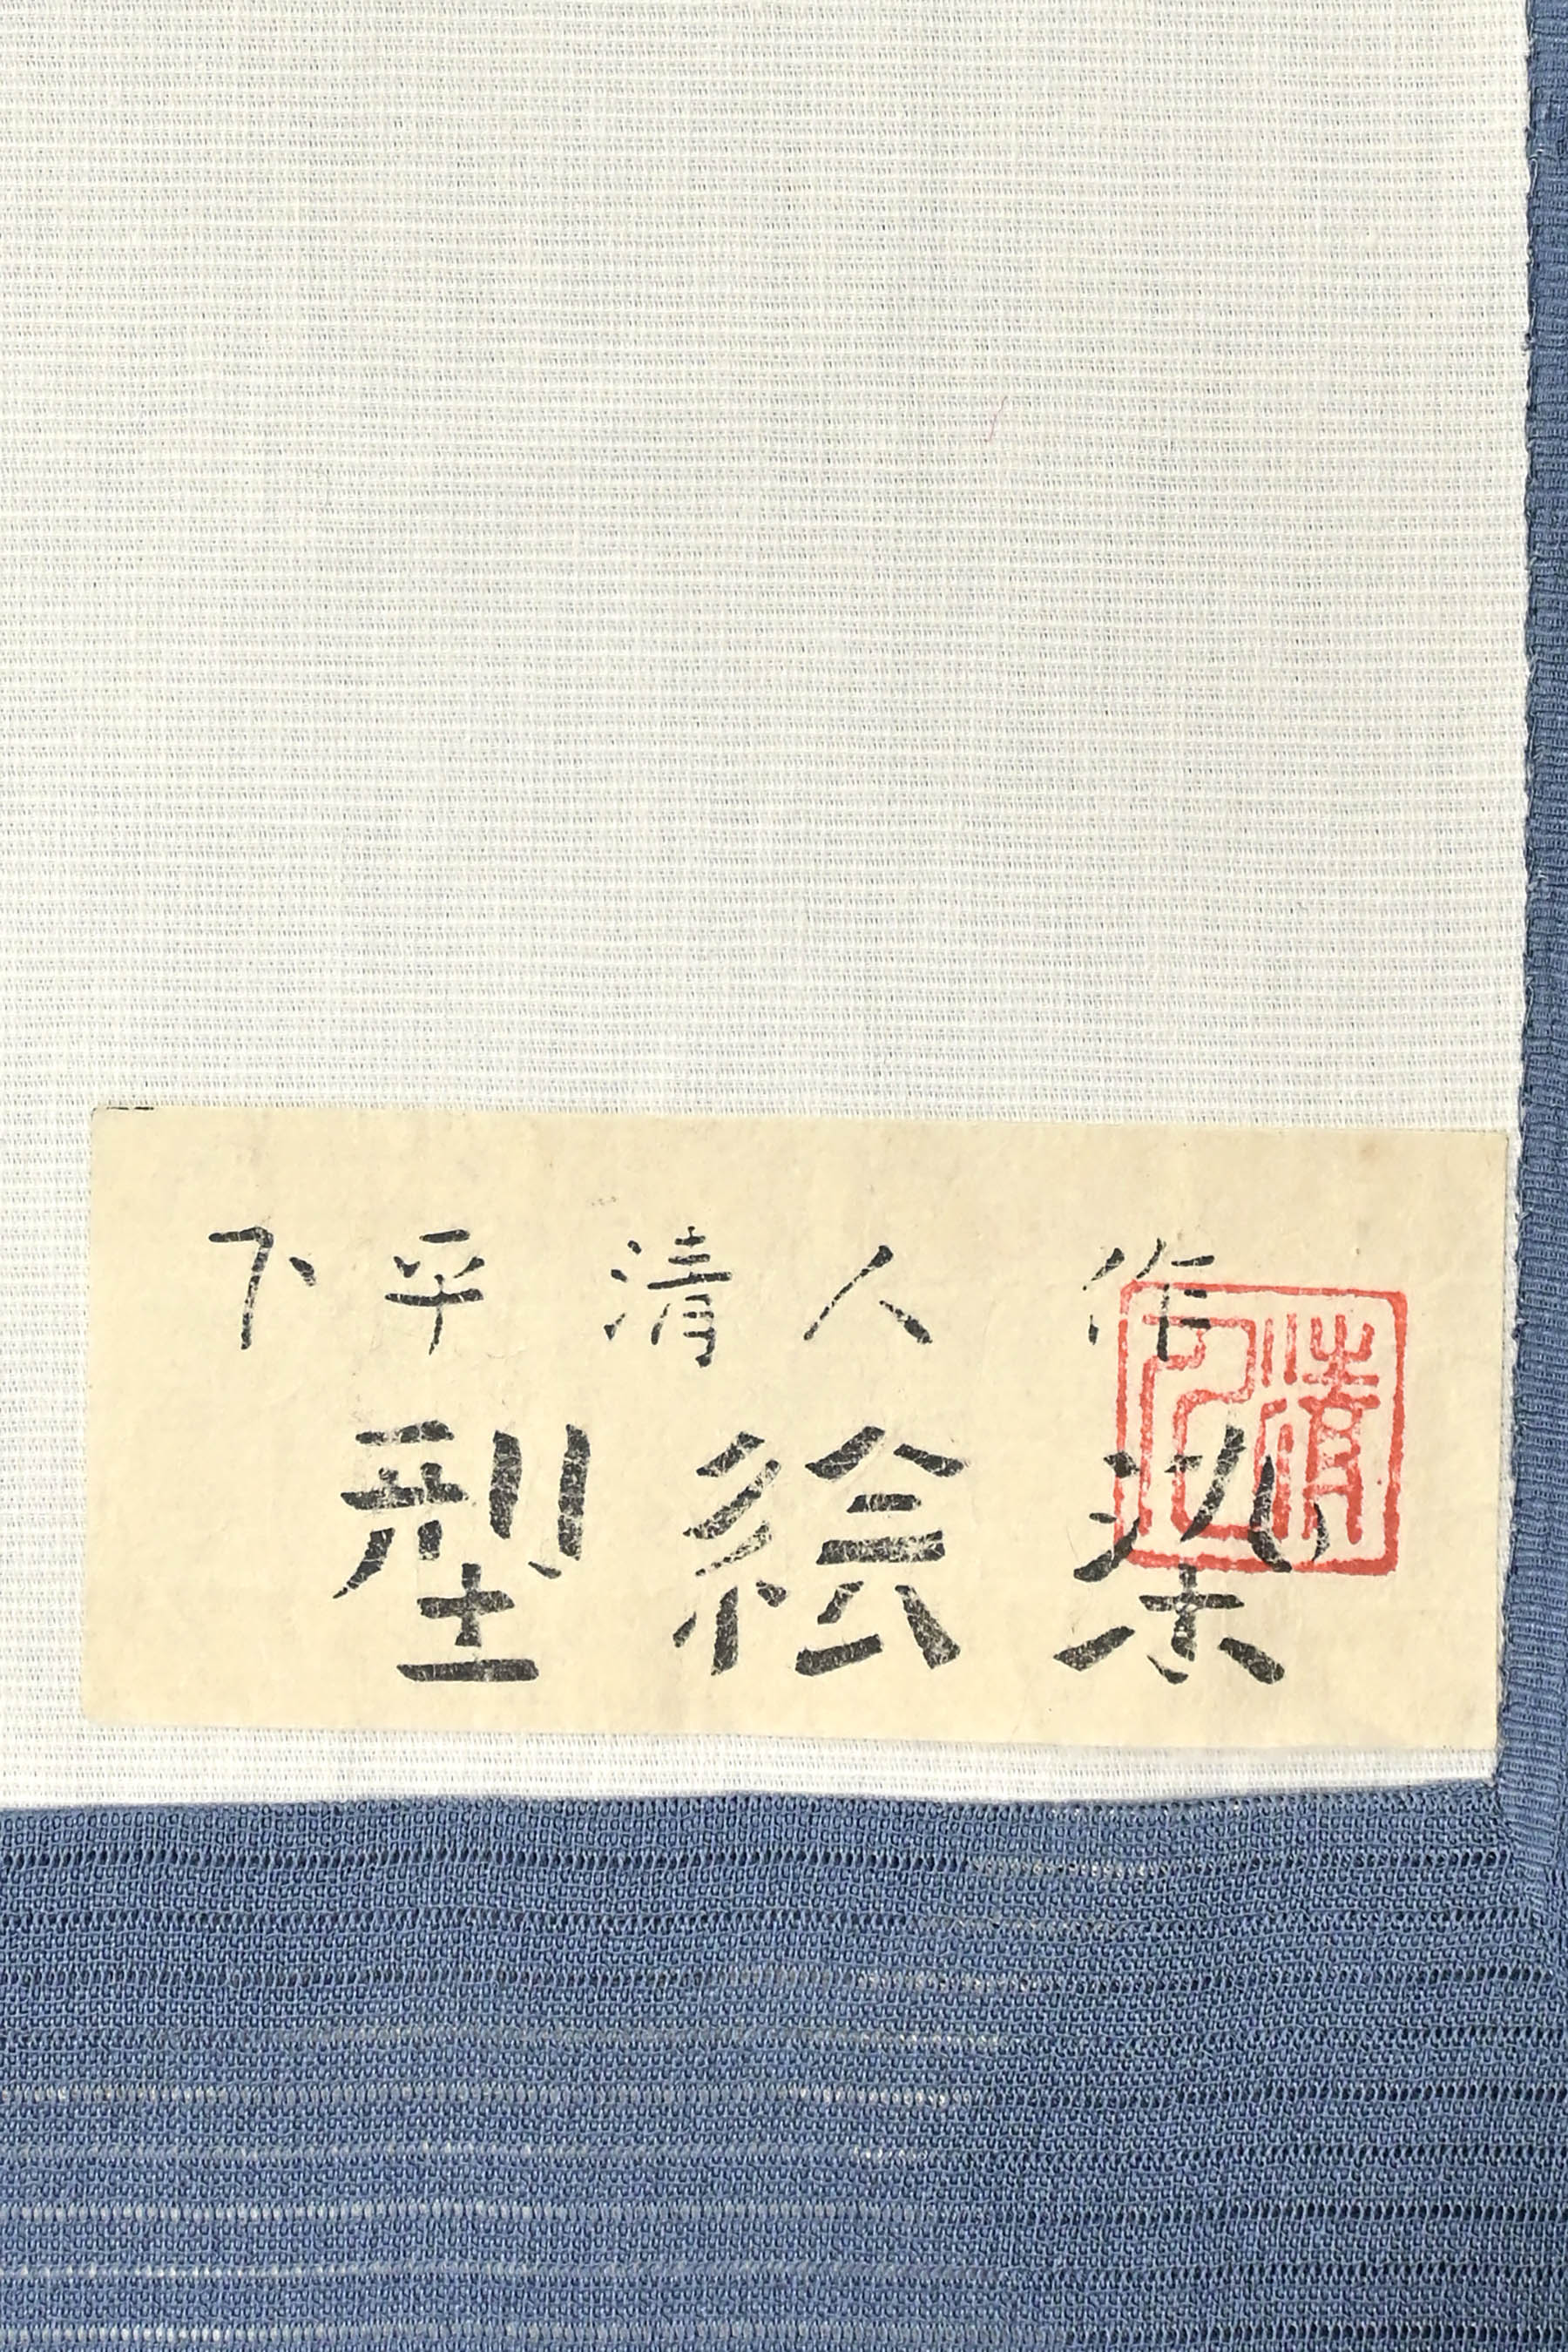 下平清人作
型絵染
清人